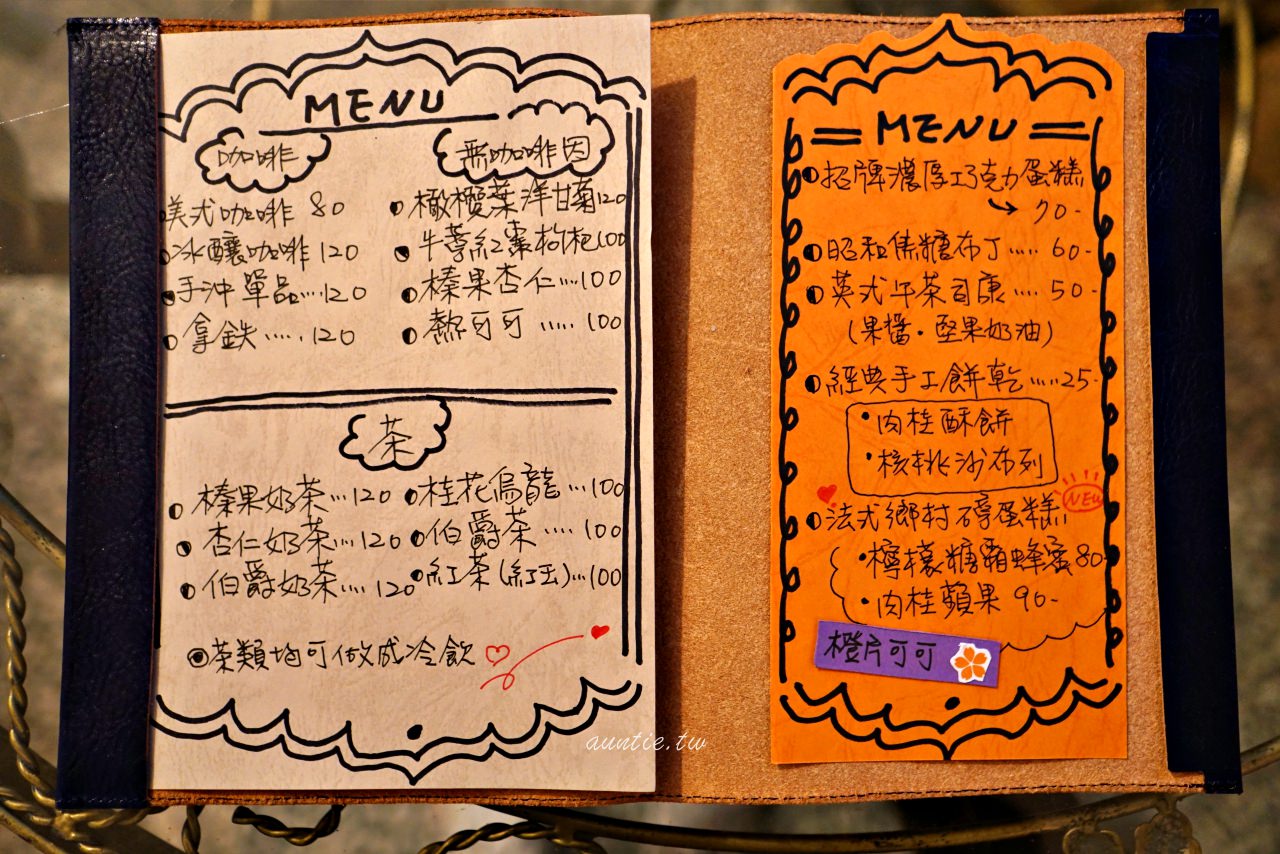 MENU
咖啡
美式咖啡 80
冰釀咖啡 120
手沖單品...120
拿鉄.....120
無咖啡因
橄欖葉洋甘菊120
牛蒡紅棗枸杞100
榛果杏仁....100
熱可可.....100
茶
榛果奶茶...120
杏仁奶茶...120
伯爵奶茶....120
桂花烏龍...100
伯爵茶....100
紅茶(紅玉)...100
茶類均可做成冷飲
MENU
招牌濃厚巧克力蛋糕
→ 70-
昭和焦糖布丁.....60-
英式午茶司康....50-
(果醬·堅果奶油)
經典手工餅乾.....25-
·肉桂酥餅
·核桃沙布列
NEW
法式鄉村磅蛋糕
·檸檬糖霜蜂蜜80-
·肉桂蘋果 90-
橙片可可
auntie.tw